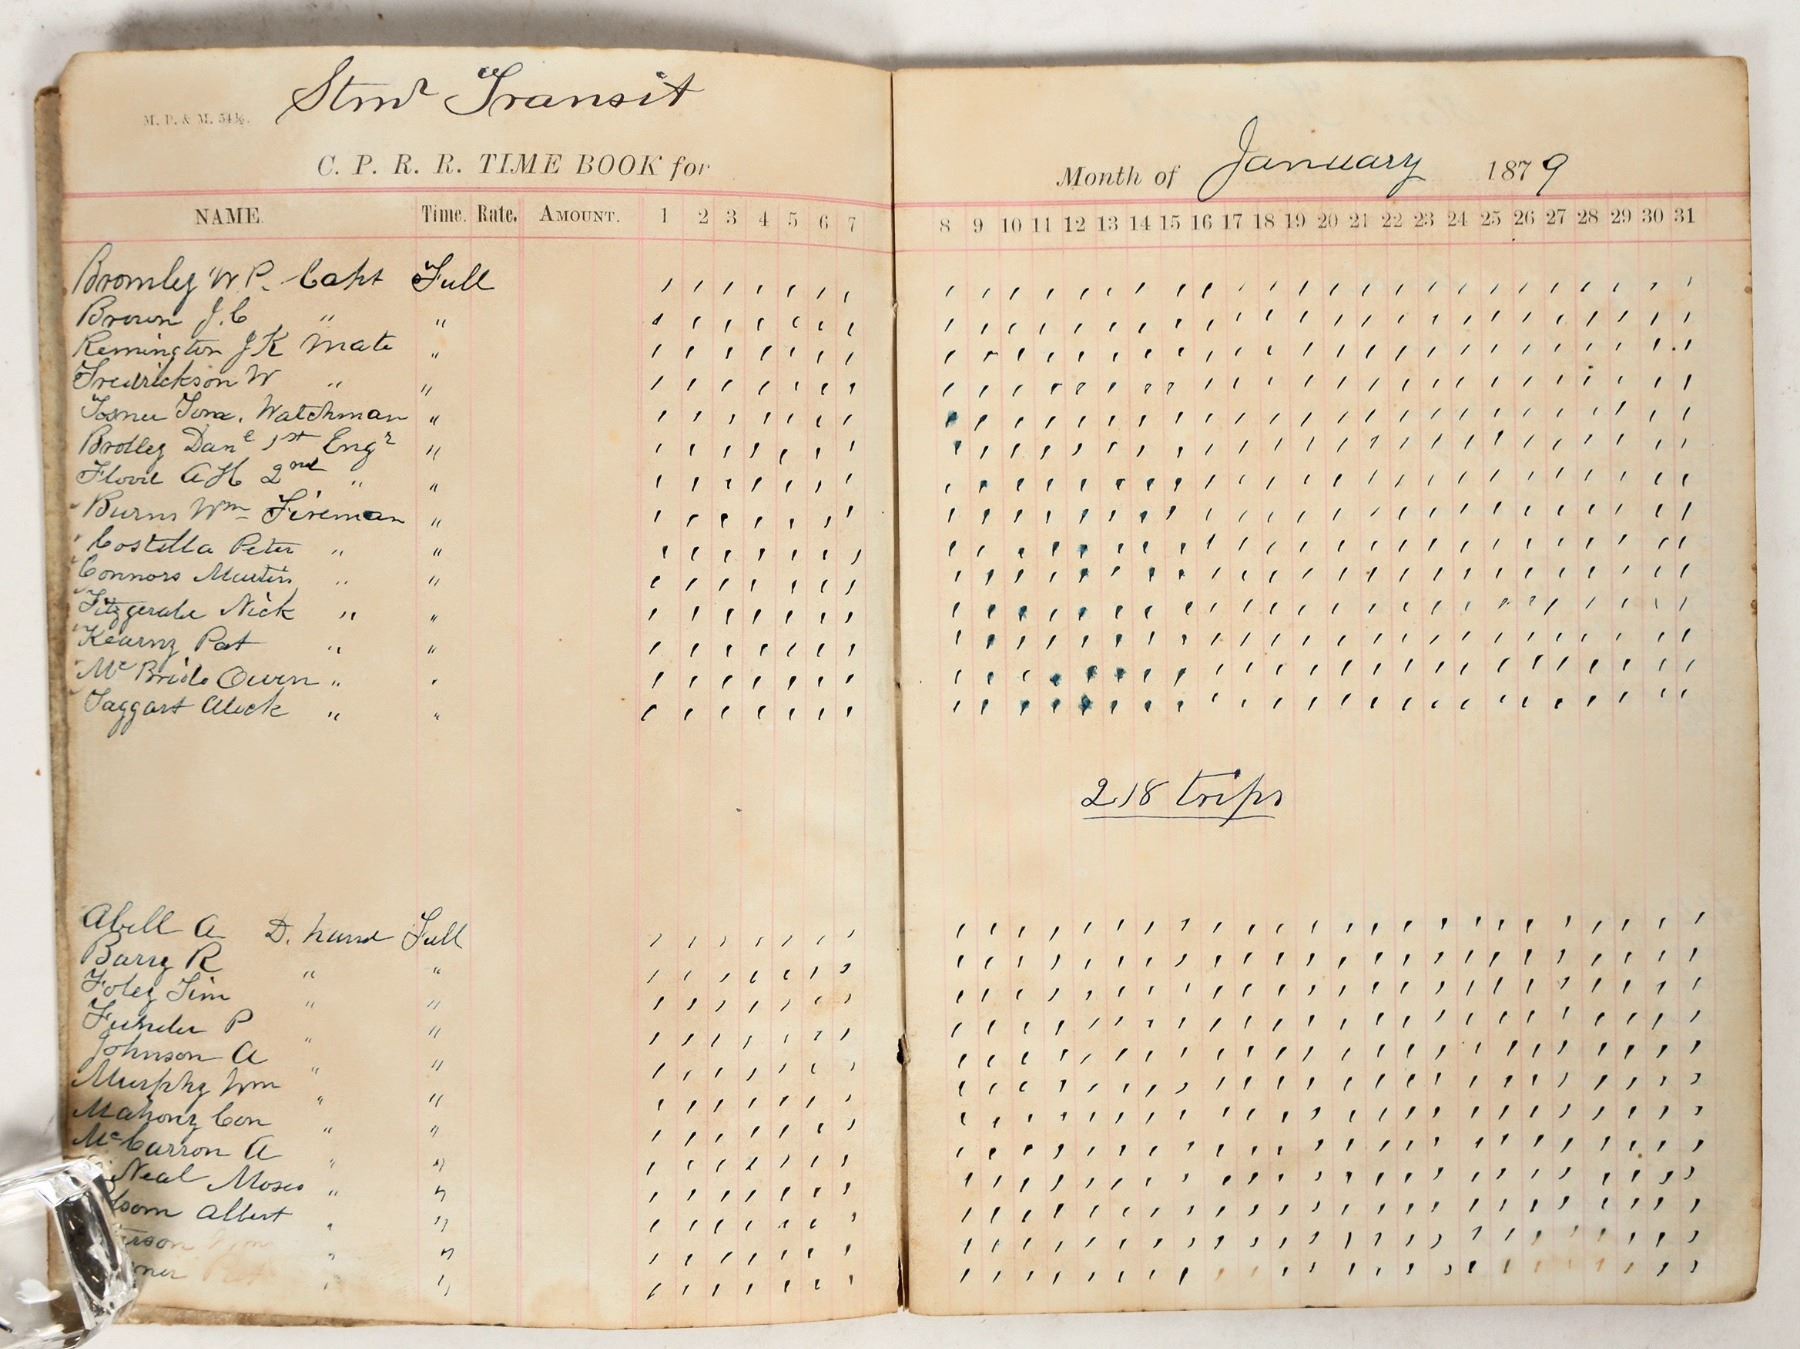 Stmr Transit
M. P. & M. 54½.
C. P. R. R. TIME BOOK for
Month of January 1879
NAME. Time. Rate. AMOUNT. 1 2 3 4 5 6 7 8 9 10 11 12 13 14 15 16 17 18 19 20 21 22 23 24 25 26 27 28 29 30 31
Bromley W P. Capt Full
Brown J. C " "
Remington J K Mate "
Fredrickson W " "
Tom. Watchman "
Brolley Danl 1st Engr "
A H 2nd " "
Burns Wm Fireman "
Costella Peter " "
Connors Martin " "
Fitzgerald Nick " "
Kearny Pat " "
McBride Owen " "
Taggart Aleck " "
218 trips
Abell A D. hand Full
Barry R " "
Foley Jim " "
P " "
Johnson A " "
Murphy Wm " "
Mahony Con " "
McCarron A " "
Neal Moses " "
Albert " "
" "
" "